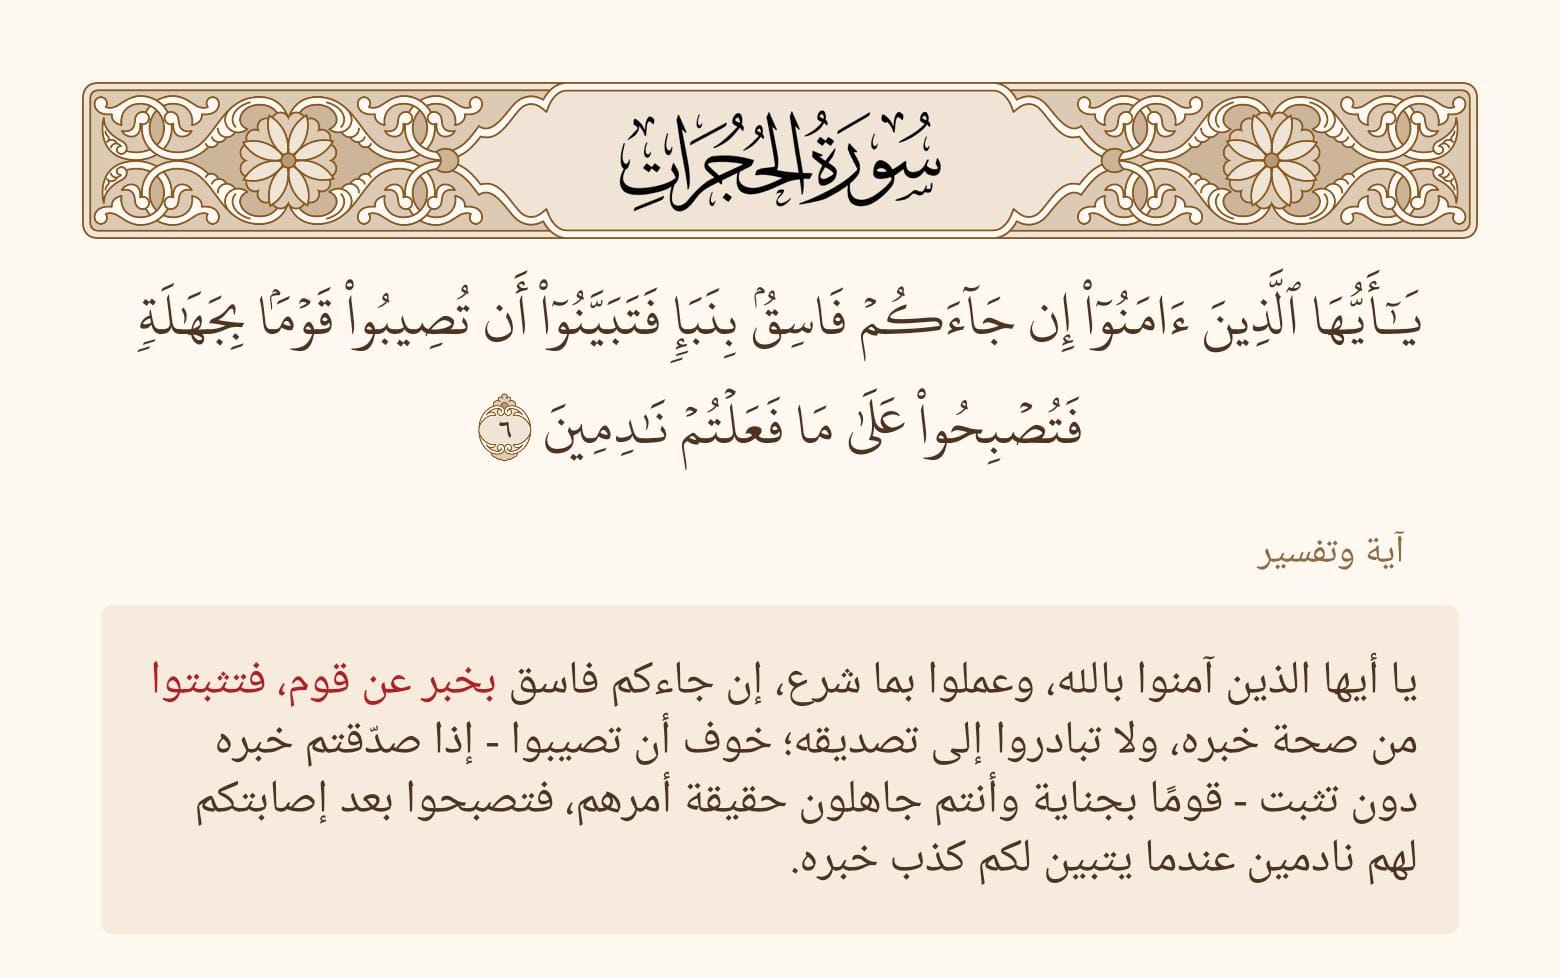 سُورَةُ الحُجُرَاتِ
يَـٰٓأَيُّهَا ٱلَّذِينَ ءَامَنُوٓاْ إِن جَآءَكُمۡ فَاسِقُۢ بِنَبَإٖ فَتَبَيَّنُوٓاْ أَن تُصِيبُواْ قَوۡمَۢا بِجَهَٰلَةٖ
فَتُصۡبِحُواْ عَلَىٰ مَا فَعَلۡتُمۡ نَٰدِمِينَ ٦
آية وتفسير
يا أيها الذين آمنوا بالله، وعملوا بما شرع، إن جاءكم فاسق بخبر عن قوم، فتثبتوا
من صحة خبره، ولا تبادروا إلى تصديقه؛ خوف أن تصيبوا - إذا صدّقتم خبره
دون تثبت - قومًا بجناية وأنتم جاهلون حقيقة أمرهم، فتصبحوا بعد إصابتكم
لهم نادمين عندما يتبين لكم كذب خبره.